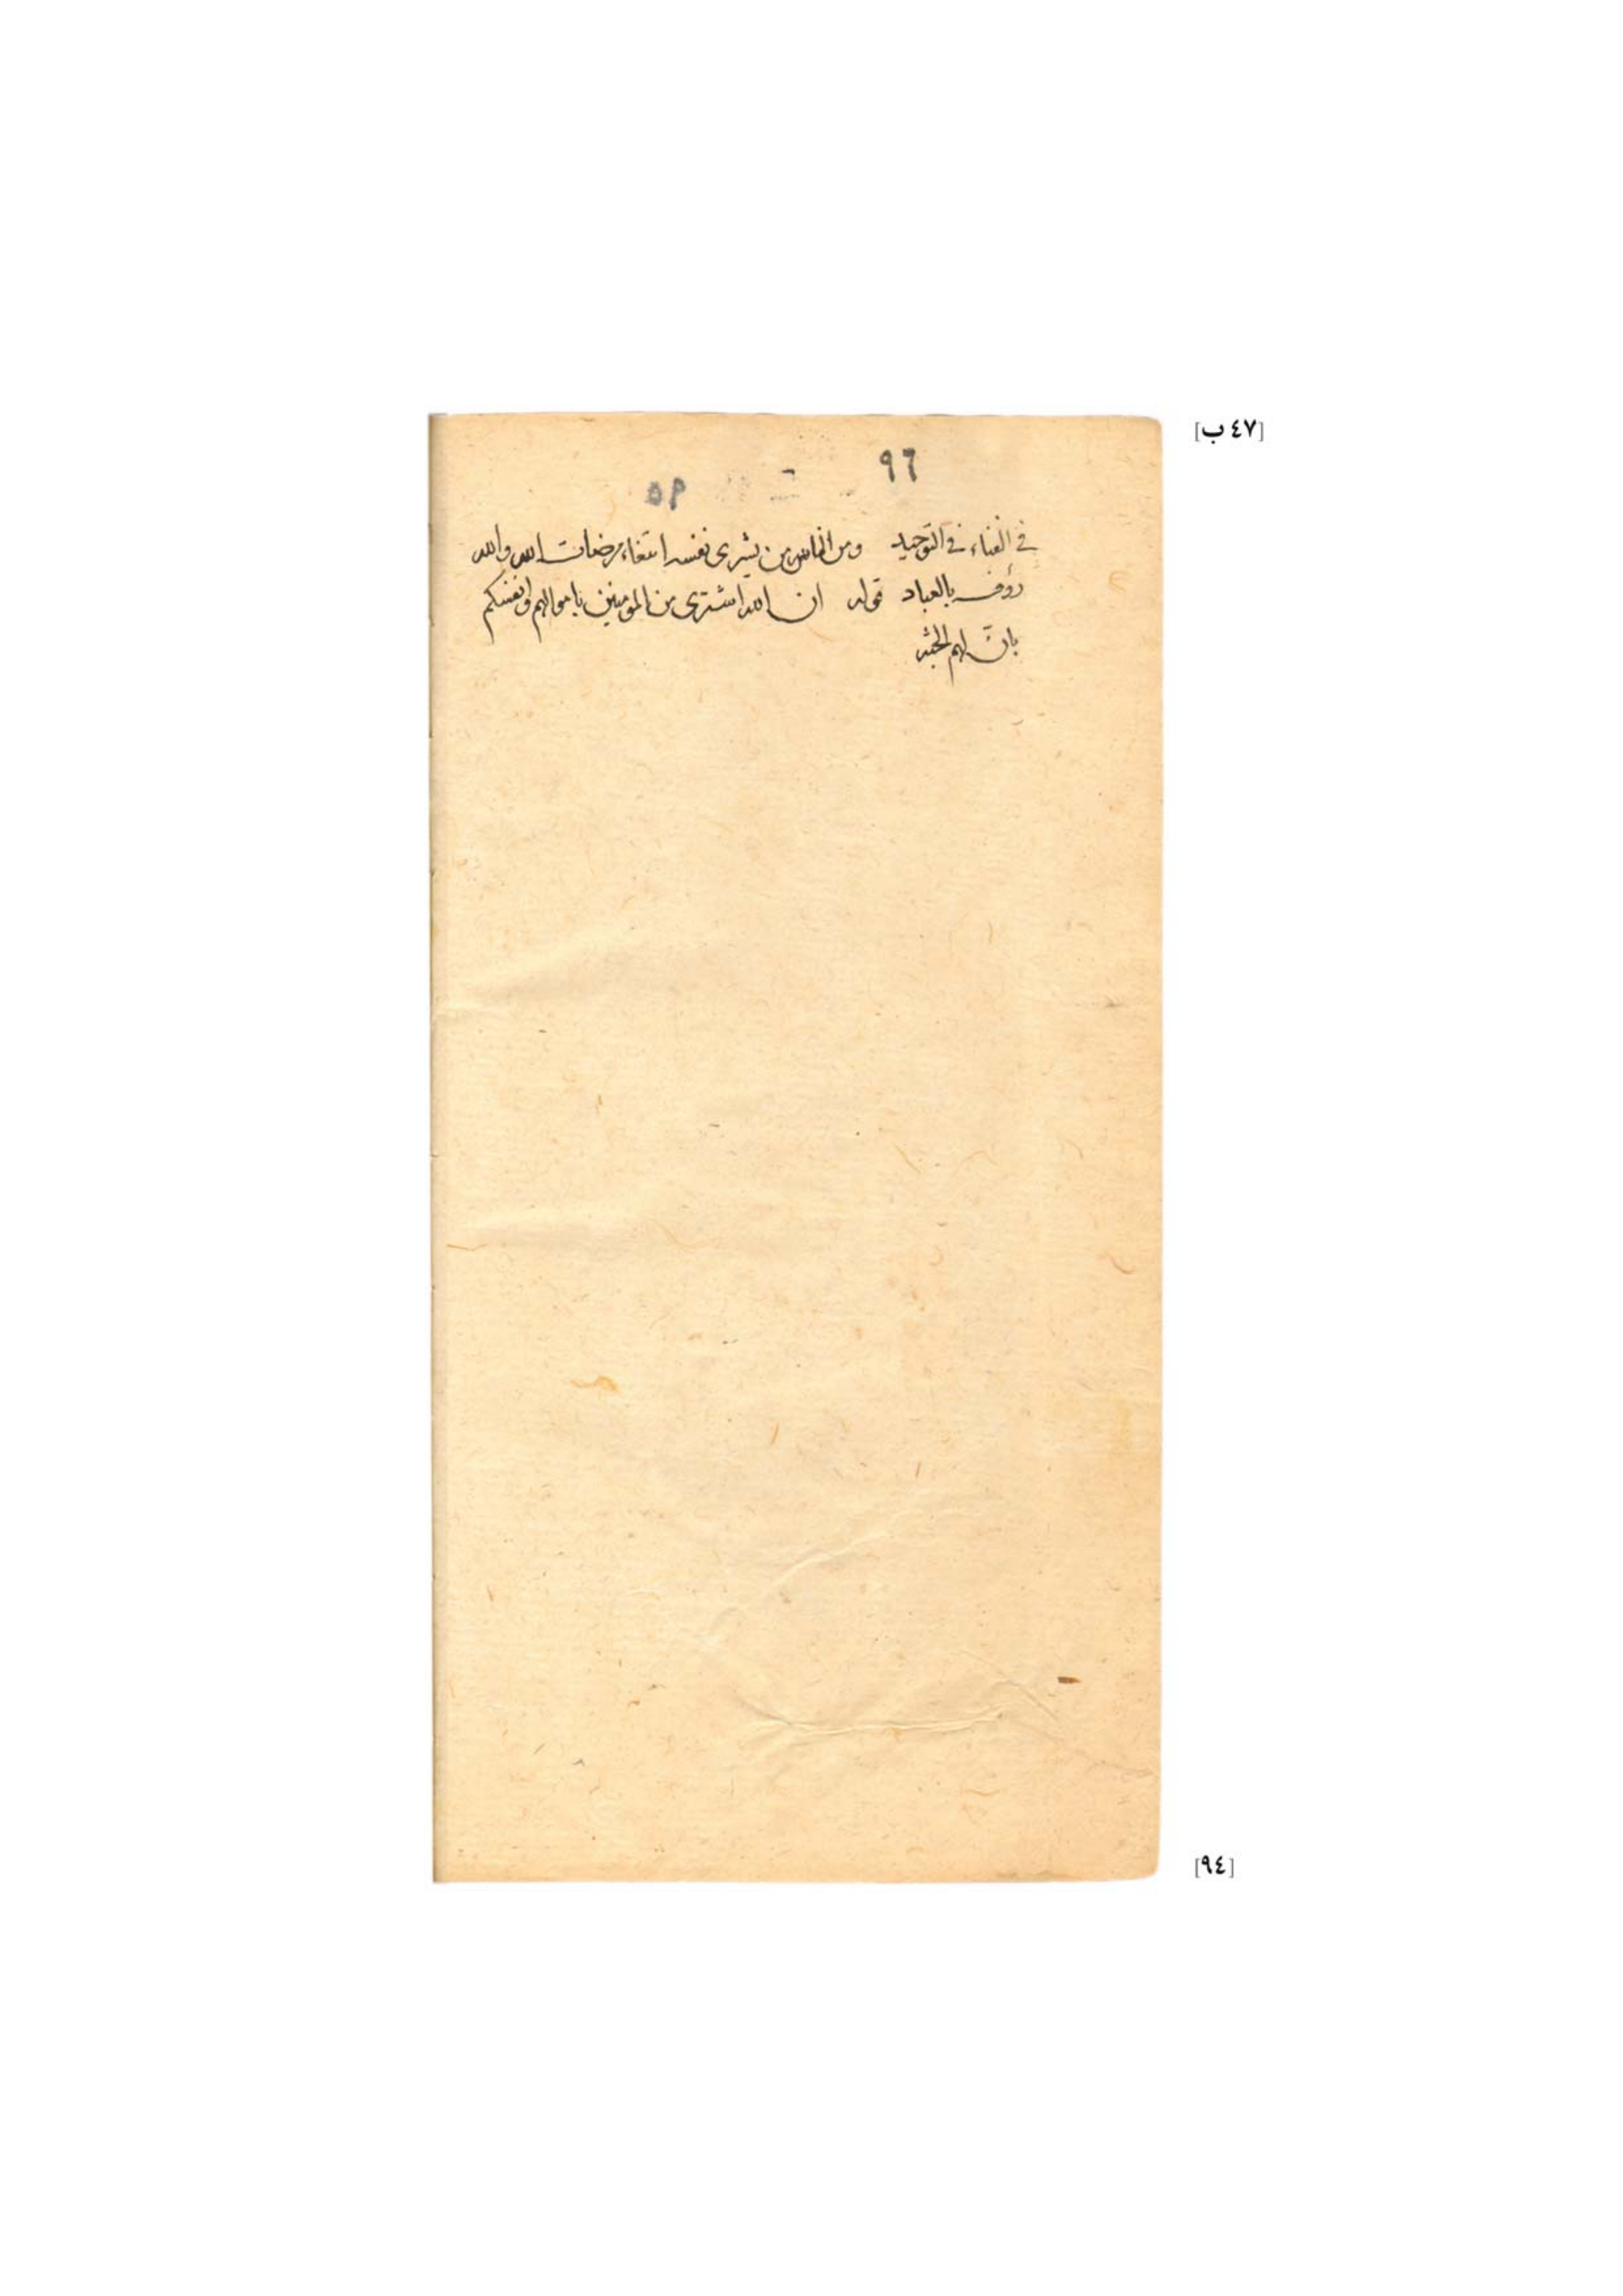 [٤٧ ب]
٩٦
٥٩
في الفناء في التوحيد ومن الناس من يشرى نفسه ابتغاء مرضات الله والله
رؤف بالعباد قوله ان الله اشترى من المومنين باموالهم وانفسكم
بانّ لهم الجنة
[٩٤]